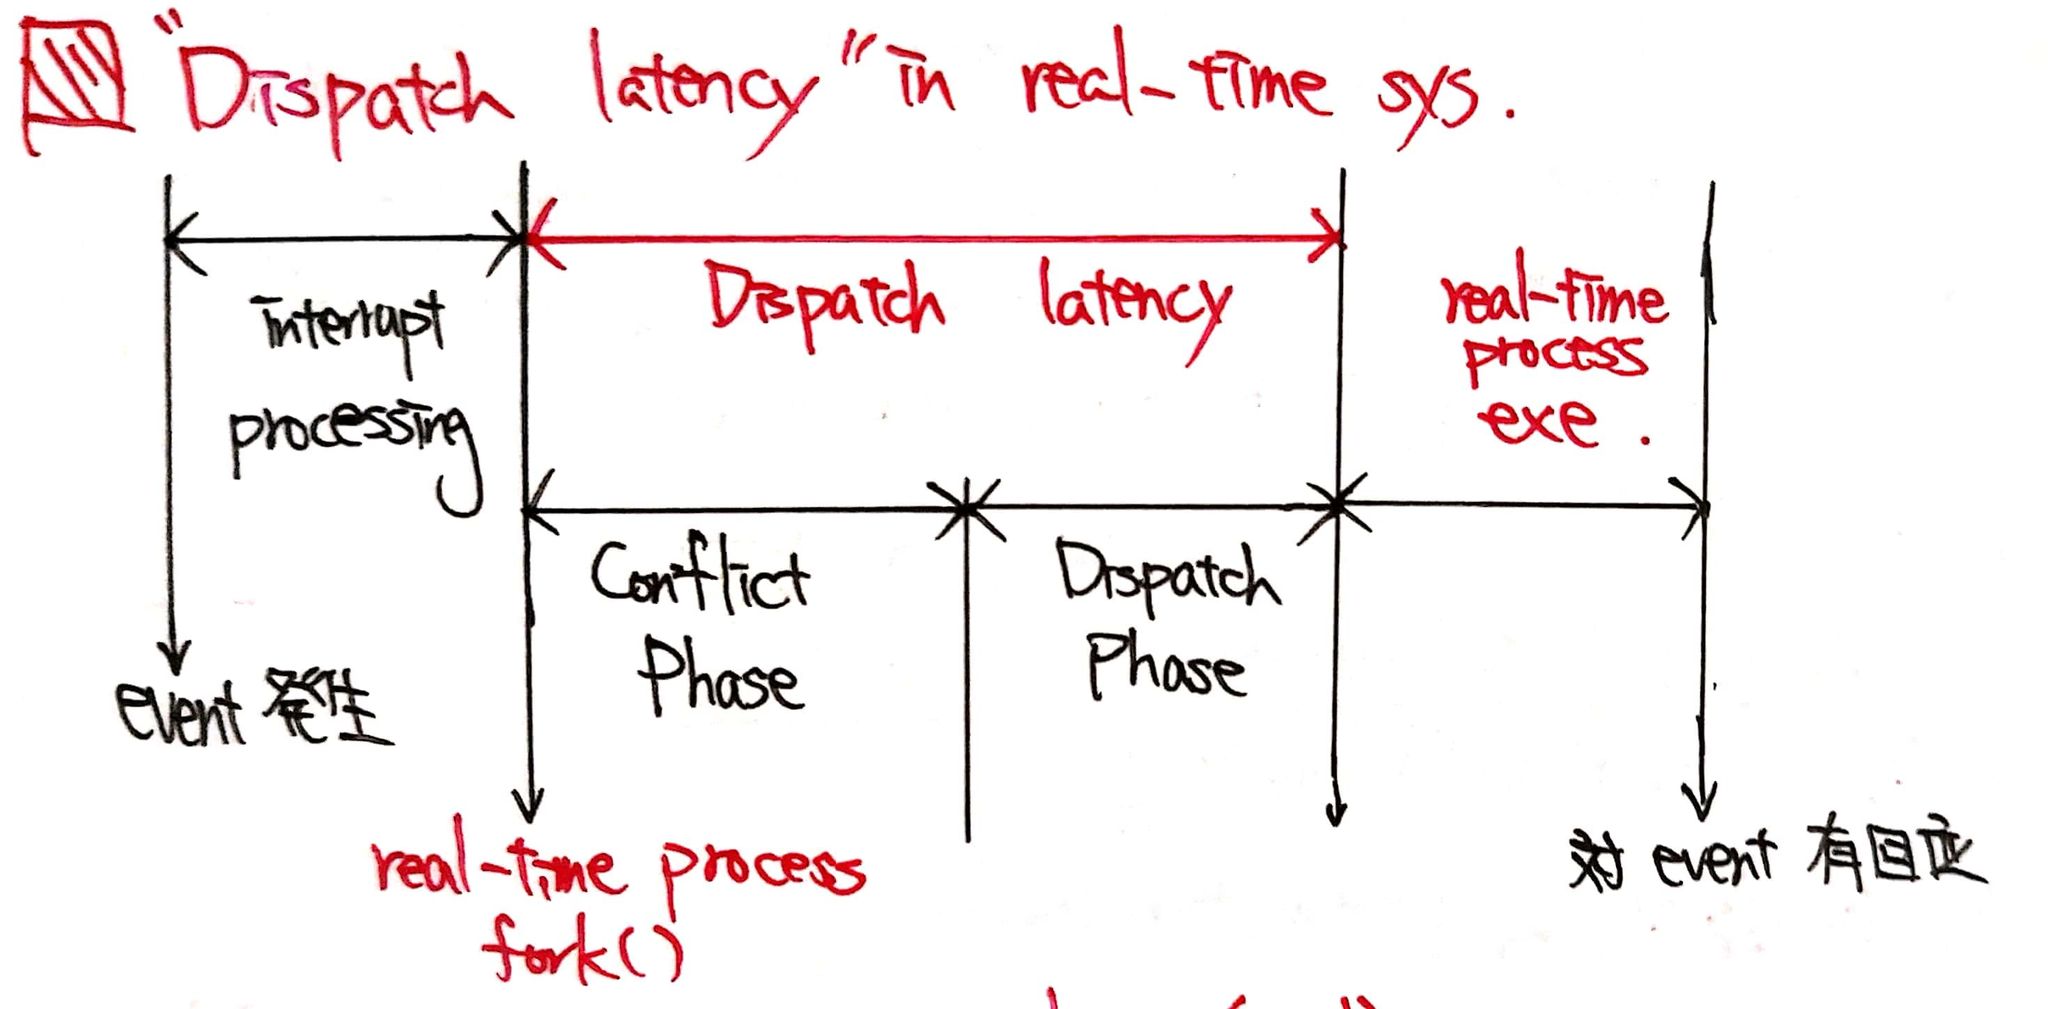 "Dispatch latency" in real-time sys.
interrupt
processing
Dispatch latency
real-time
process
exe.
Conflict
Phase
Dispatch
Phase
event 発生
real-time process
fork()
対 event 有回应